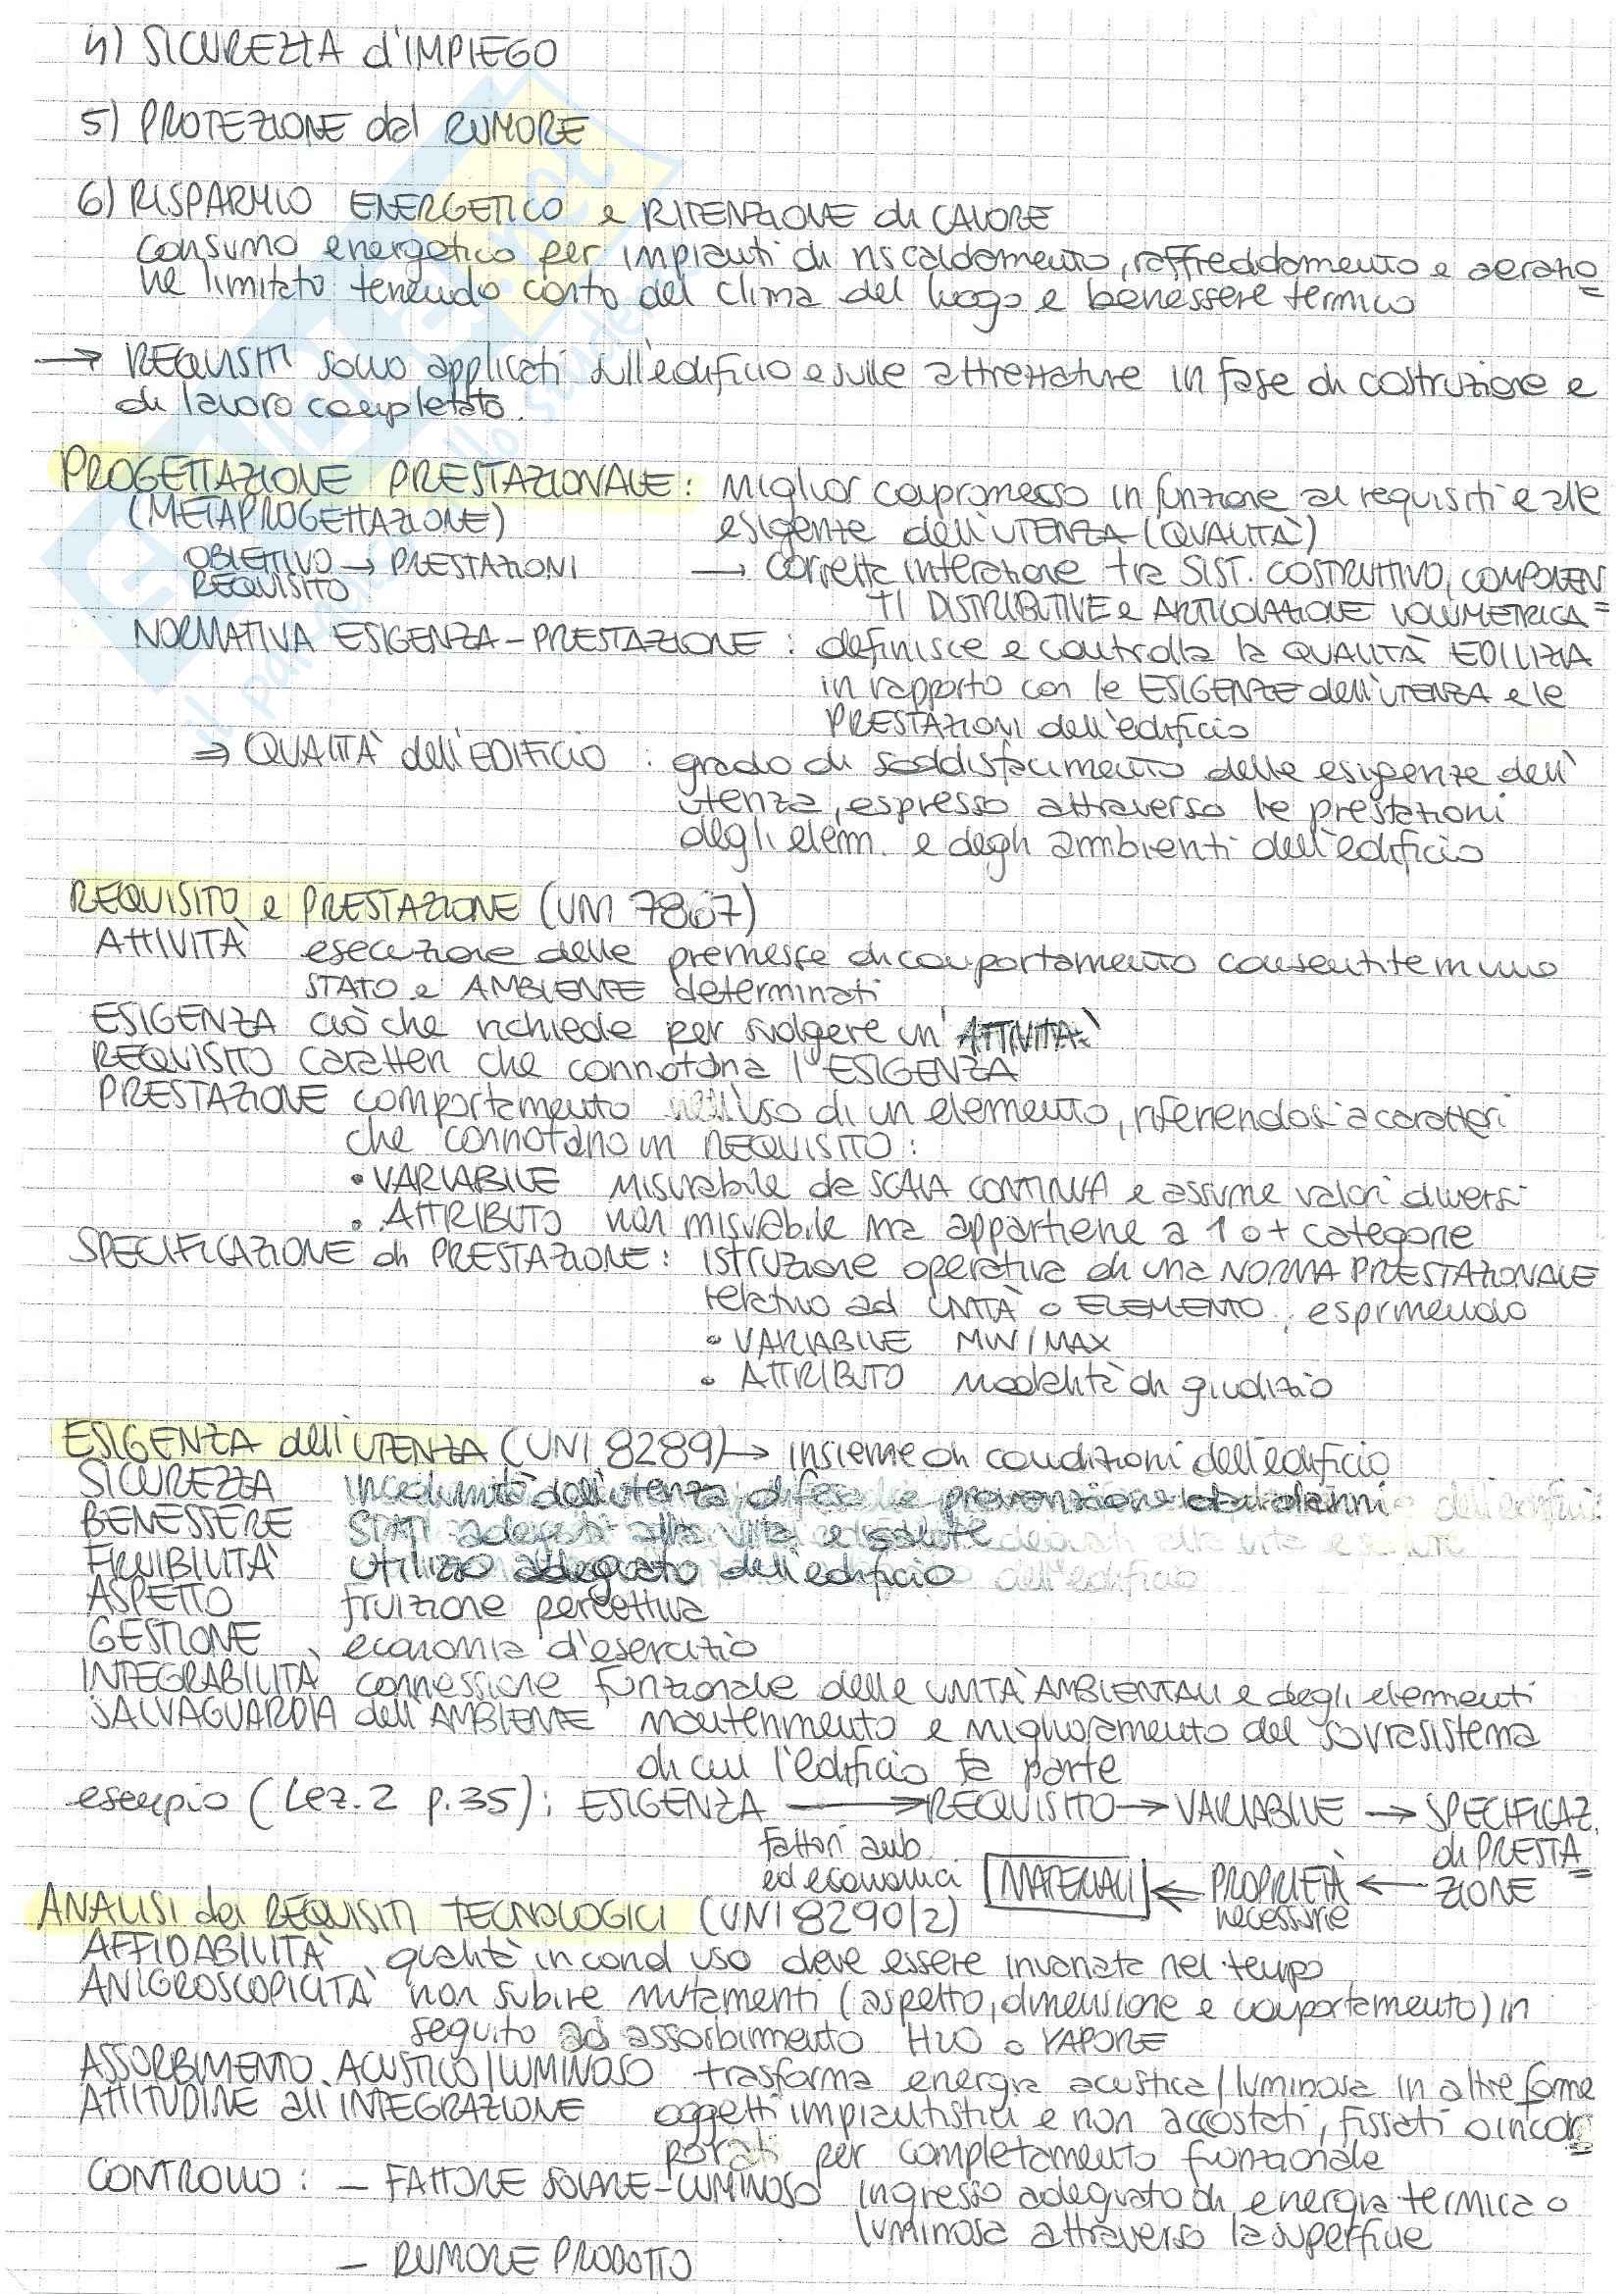 4) SICUREZZA d'IMPIEGO
5) PROTEZIONE dal RUMORE
6) RISPARMIO ENERGETICO e RITENZIONE di CALORE
consumo energetico per impianti di riscaldamento, raffreddamento e aerazio
ne limitato tenendo conto del clima del luogo e benessere termico
→ REQUISITI sono applicati sull'edificio e sulle attrezzature in fase di costruzione e
di lavoro completato.
PROGETTAZIONE PRESTAZIONALE: miglior compromesso in funzione ai requisiti e alle
(METAPROGETTAZIONE) esigenze dell'UTENZA (QUALITÀ)
OBIETTIVO → PRESTAZIONI → corretta interazione tra SIST. COSTRUTTIVO, COMPONEN
REQUISITO TI DISTRIBUTIVE e ARTICOLAZIONE VOLUMETRICA
NORMATIVA ESIGENZA-PRESTAZIONE: definisce e controlla la QUALITÀ EDILIZIA
in rapporto con le ESIGENZE dell'UTENZA e le
PRESTAZIONI dell'edificio
⇒ QUALITÀ dell'EDIFICIO: grado di soddisfacimento delle esigenze dell'
utenza, espresso attraverso le prestazioni
degli elem. e degli ambienti dell'edificio
REQUISITO e PRESTAZIONE (UNI 7867)
ATTIVITÀ esecuzione delle premesse di comportamento consentite in uno
STATO e AMBIENTE determinati
ESIGENZA ciò che richiede per svolgere un'ATTIVITÀ
REQUISITO caratteri che connotano l'ESIGENZA
PRESTAZIONE comportamento nell'uso di un elemento, riferendosi a caratteri
che connotano un REQUISITO:
• VARIABILE misurabile da SCALA CONTINUA e assume valori diversi
• ATTRIBUTO non misurabile ma appartiene a 1 o + categorie
SPECIFICAZIONE di PRESTAZIONE: istruzione operativa di una NORMA PRESTAZIONALE
relativo ad UNITÀ o ELEMENTO, esprimendo
• VARIABILE MIN/MAX
• ATTRIBUTO modalità di giudizio
ESIGENZA dell'UTENZA (UNI 8289) → insieme di condizioni dell'edificio
SICUREZZA incolumità dell'utenza, difesa e prevenzione danni
BENESSERE STATI adeguati alla vita e salute
FRUIBILITÀ utilizzo adeguato dell'edificio
ASPETTO fruizione percettiva
GESTIONE economia d'esercizio
INTEGRABILITÀ connessione funzionale delle UNITÀ AMBIENTALI e degli elementi
SALVAGUARDIA dell'AMBIENTE mantenimento e miglioramento del sovrasistema
di cui l'edificio fa parte
esempio (Lez. 2 p. 35): ESIGENZA → REQUISITO → VARIABILE → SPECIFICAZ.
di PRESTA
ZIONE
fattori amb
ed economici MATERIALI ← PROPRIETÀ ←
necessarie
ANALISI dei REQUISITI TECNOLOGICI (UNI 8290/2)
AFFIDABILITÀ qualità in cond uso deve essere invariata nel tempo
ANIGROSCOPICITÀ non subire mutamenti (aspetto, dimensione e comportamento) in
seguito ad assorbimento H2O o VAPORE
ASSORBIMENTO ACUSTICO/LUMINOSO trasforma energia acustica/luminosa in altre forme
ATTITUDINE all'INTEGRAZIONE oggetti impiantistici e non accostati, fissati o incor
porati per completamento funzionale
CONTROLLO: - FATTORE SOLARE-LUMINOSO ingresso adeguato di energia termica o
luminosa attraverso la superficie
- RUMORE PRODOTTO